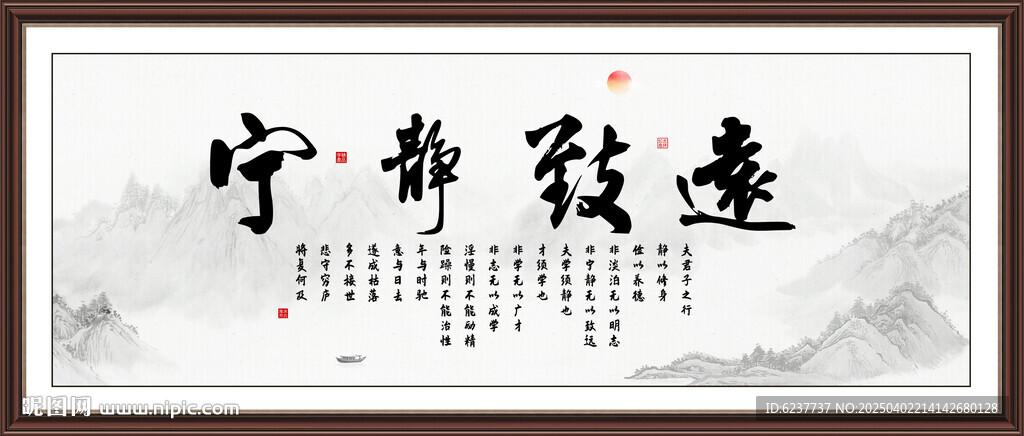 宁静致遠
夫君子之行
静以修身
俭以养德
非淡泊无以明志
非宁静无以致远
夫学须静也
才须学也
非学无以广才
非志无以成学
淫慢则不能励精
险躁则不能治性
年与时驰
意与日去
遂成枯落
多不接世
悲守穷庐
将复何及
昵图网 www.nipic.com
ID:6237737 NO:20250402214142680128